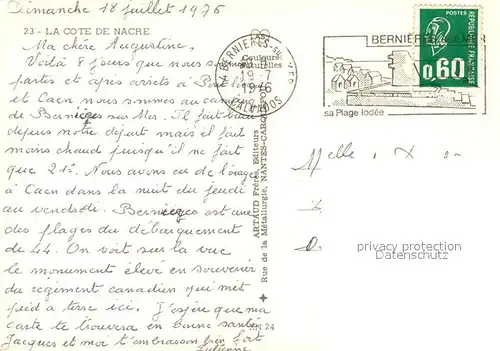 Dimanche 18 juillet 1976
23 - LA COTE DE NACRE
Ma chère Augustine,
Voilà 8 jours que nous sommes
partis et après arrêts à
et Caen nous sommes au camping
de Bernières sur Mer. Il fait beau
depuis notre départ mais il fait
moins chaud puisqu'il ne fait
que 21°. Nous avons eu de l'orage
à Caen dans la nuit du jeudi
au vendredi. Bernières est une
des plages du débarquement
de 44. On voit sur la vue
le monument élevé en souvenir
du régiment canadien qui mit
pied à terre ici. J'espère que ma
carte te trouvera en bonne santé.
Jacques et moi t'embrassons bien fort
Julienne
Couleurs
Naturelles
BERNIERES-SUR-MER
1976
CALVADOS
BERNIÈRES sur MER
sa Plage Iodée
POSTES
0,60
REPUBLIQUE FRANCAISE
ARTAUD Frères, Editeurs
Rue de la Métallurgie, NANTES-CARQUEFOU
24
Melle. X
privacy protection
Datenschutz